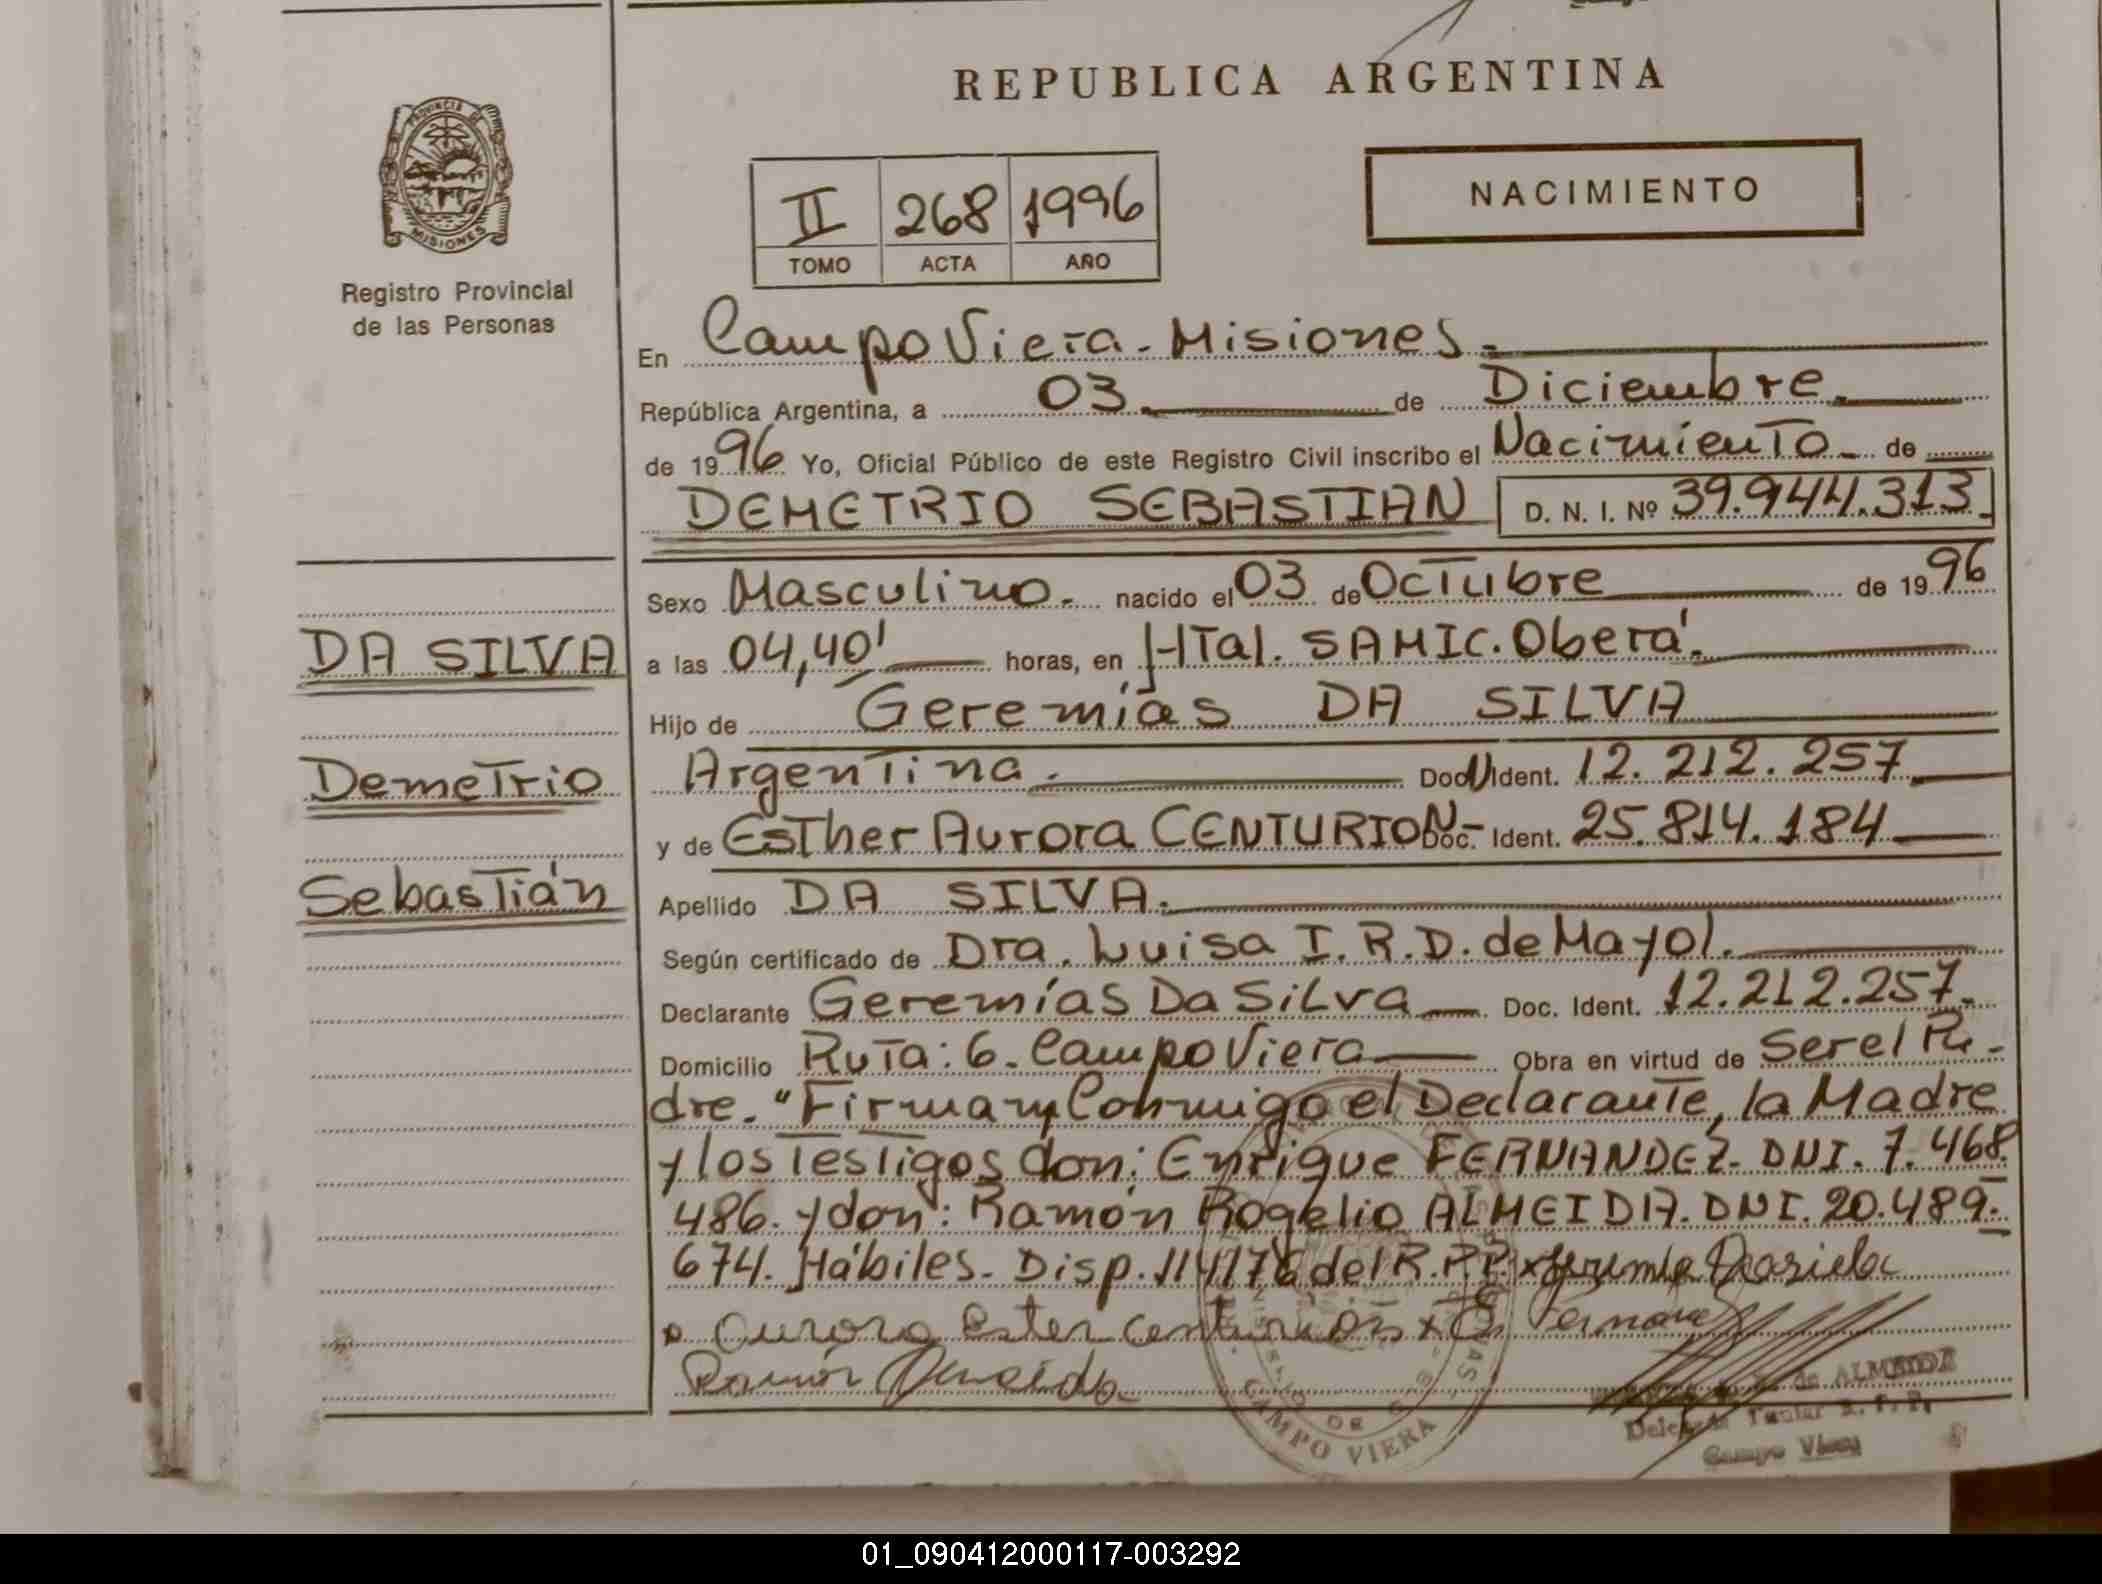 REPUBLICA ARGENTINA
PROVINCIA DE
MISIONES
Registro Provincial
de las Personas
II 268 1996
TOMO ACTA AÑO
NACIMIENTO
En Campo Viera - Misiones.
República Argentina, a 03. de Diciembre.
de 1996 Yo, Oficial Público de este Registro Civil inscribo el Nacimiento de
DEMETRIO SEBASTIAN D. N. I. Nº 39.944.313.
Sexo Masculino. nacido el 03 de Octubre de 1996
DA SILVA
a las 04,40' horas, en HTal. SAMIC. Oberá.
Hijo de Geremías DA SILVA
Demetrio
Argentina. Doc N Ident. 12.212.257
y de Esther Aurora CENTURION- Doc. Ident. 25.814.184
Sebastián
Apellido DA SILVA.
Según certificado de Dra. Luisa I. R. D. de Mayol.
Declarante Geremías Da Silva Doc. Ident. 12.212.257.
Domicilio Ruta: 6. Campo Viera Obra en virtud de Ser el Pa-
dre. "Firman Conmigo el Declarante, la Madre
y los Testigos don: Enrique FERNANDEZ- DNI. 7.468.
486. y don: Ramón Rogelio ALMEIDA. DNI. 20.489.-
674. Hábiles- Disp. 114/76 del R.P.P. x
Aurora Ester Centurion x
Ramón Almeida
de ALMEIDA
Titular R. P. P.
Campo Viera
CAMPO VIERA
01_090412000117-003292